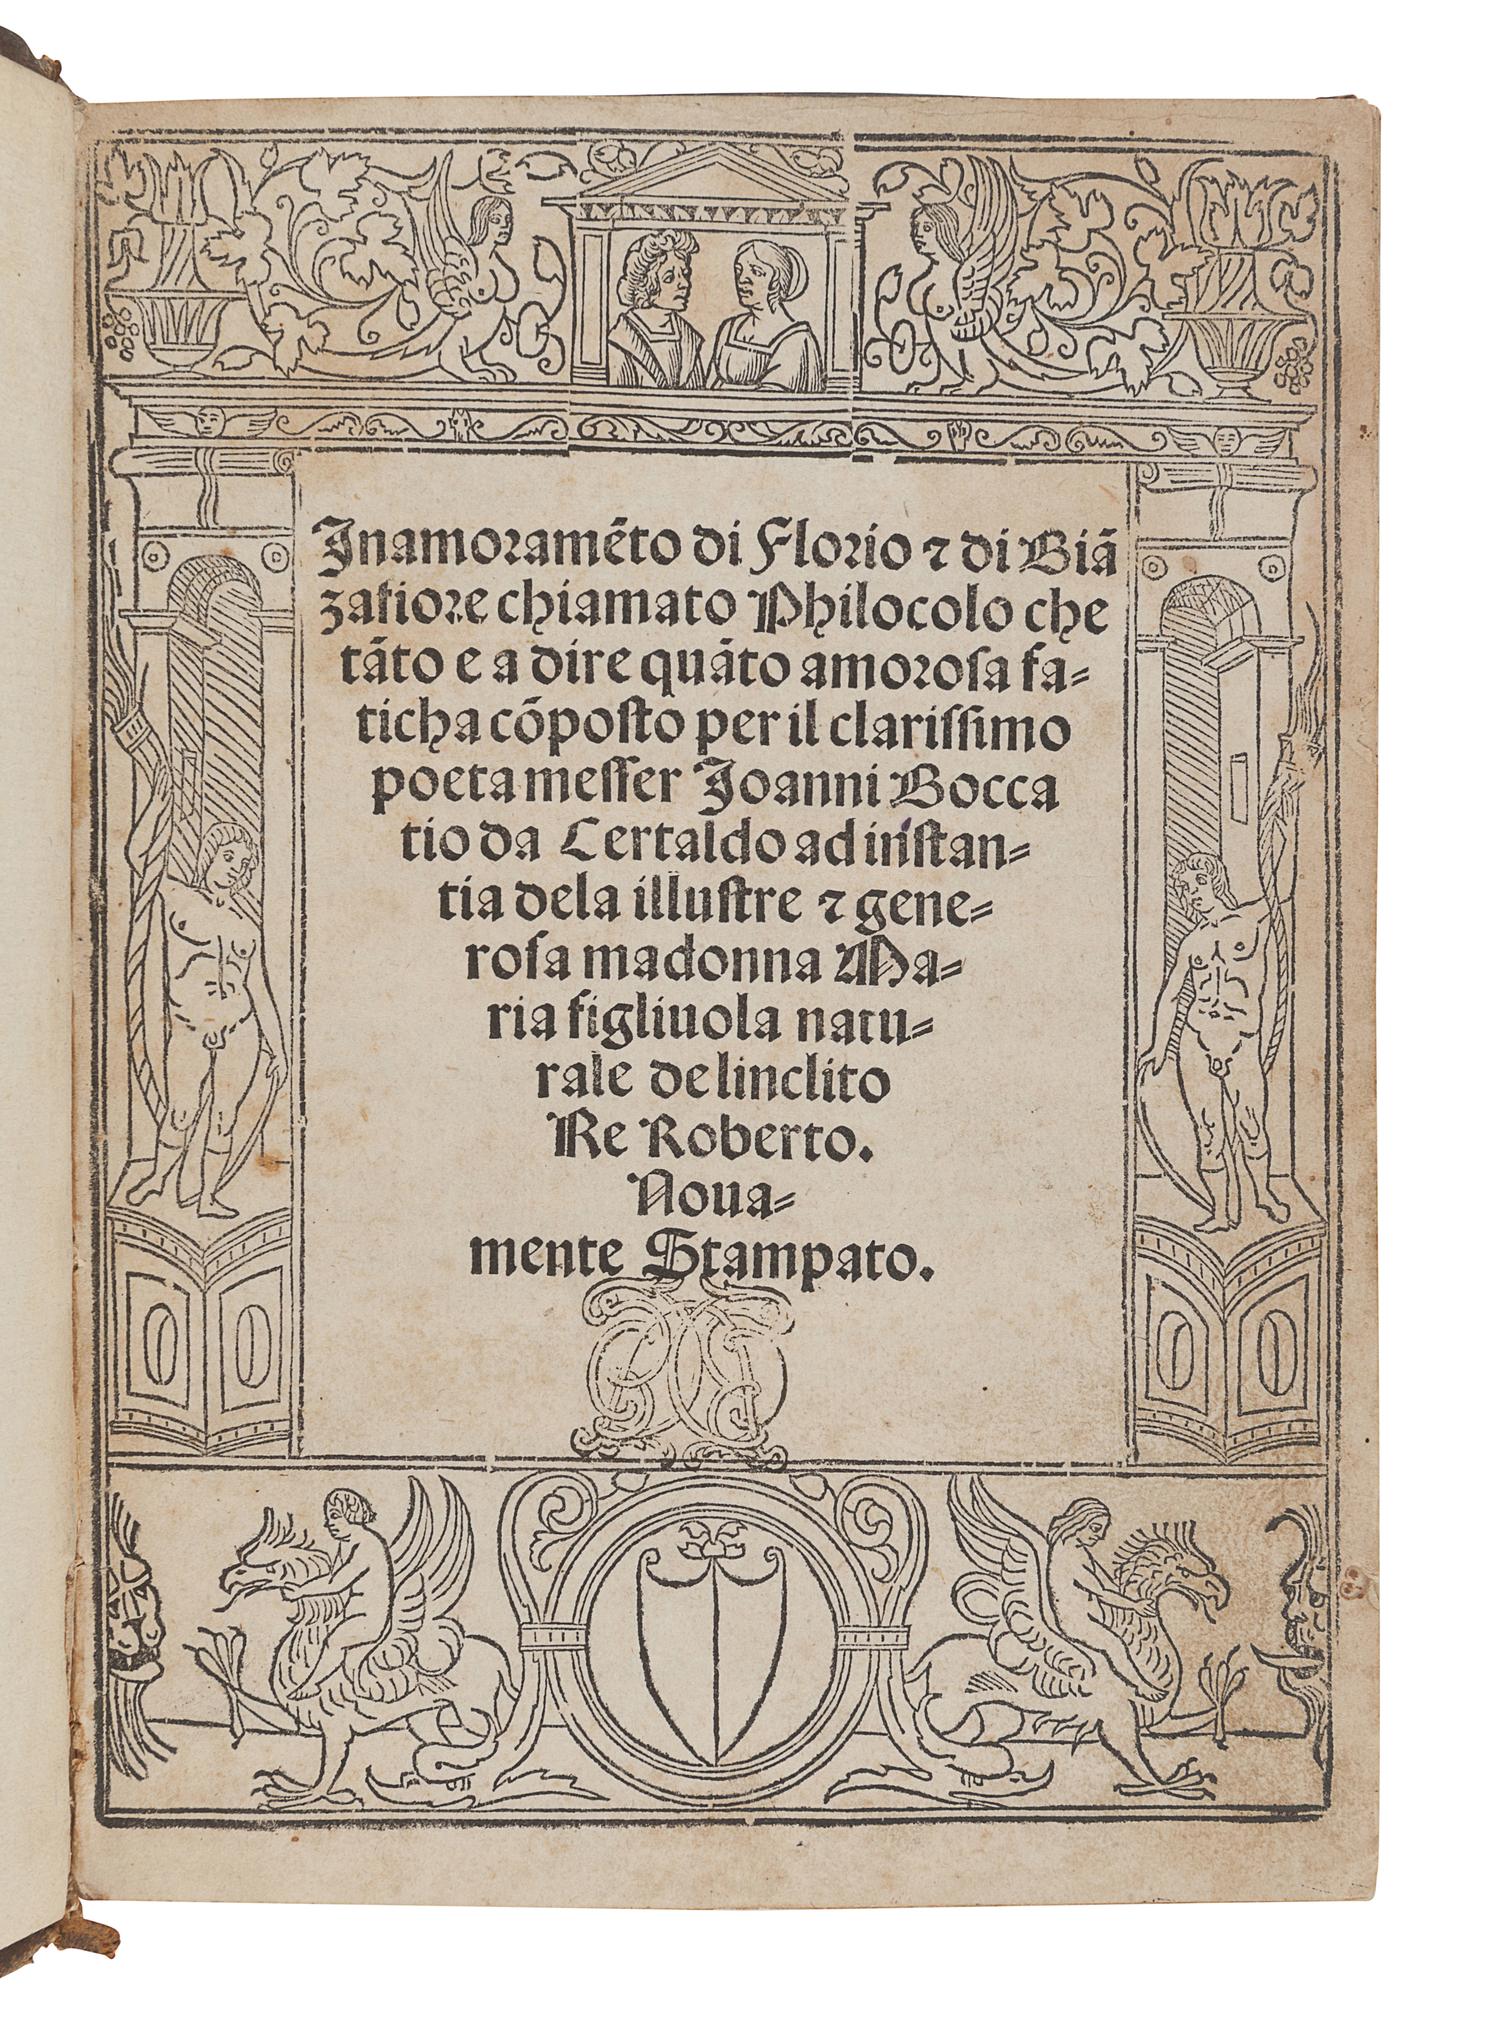 Inamoramēto di Florio ⁊ di Biā
zafiore chiamato Philocolo che
tāto e a dire quāto amoroſa fa⸗
ticha cōpoſto per il clariſſimo
poeta meſſer Joanni Bocca
tio da Certaldo ad inſtan⸗
tia dela illuſtre ⁊ gene⸗
roſa madonna Ma⸗
ria figliuola natu⸗
rale delinclito
Re Roberto.
Noua⸗
mente Stampato.